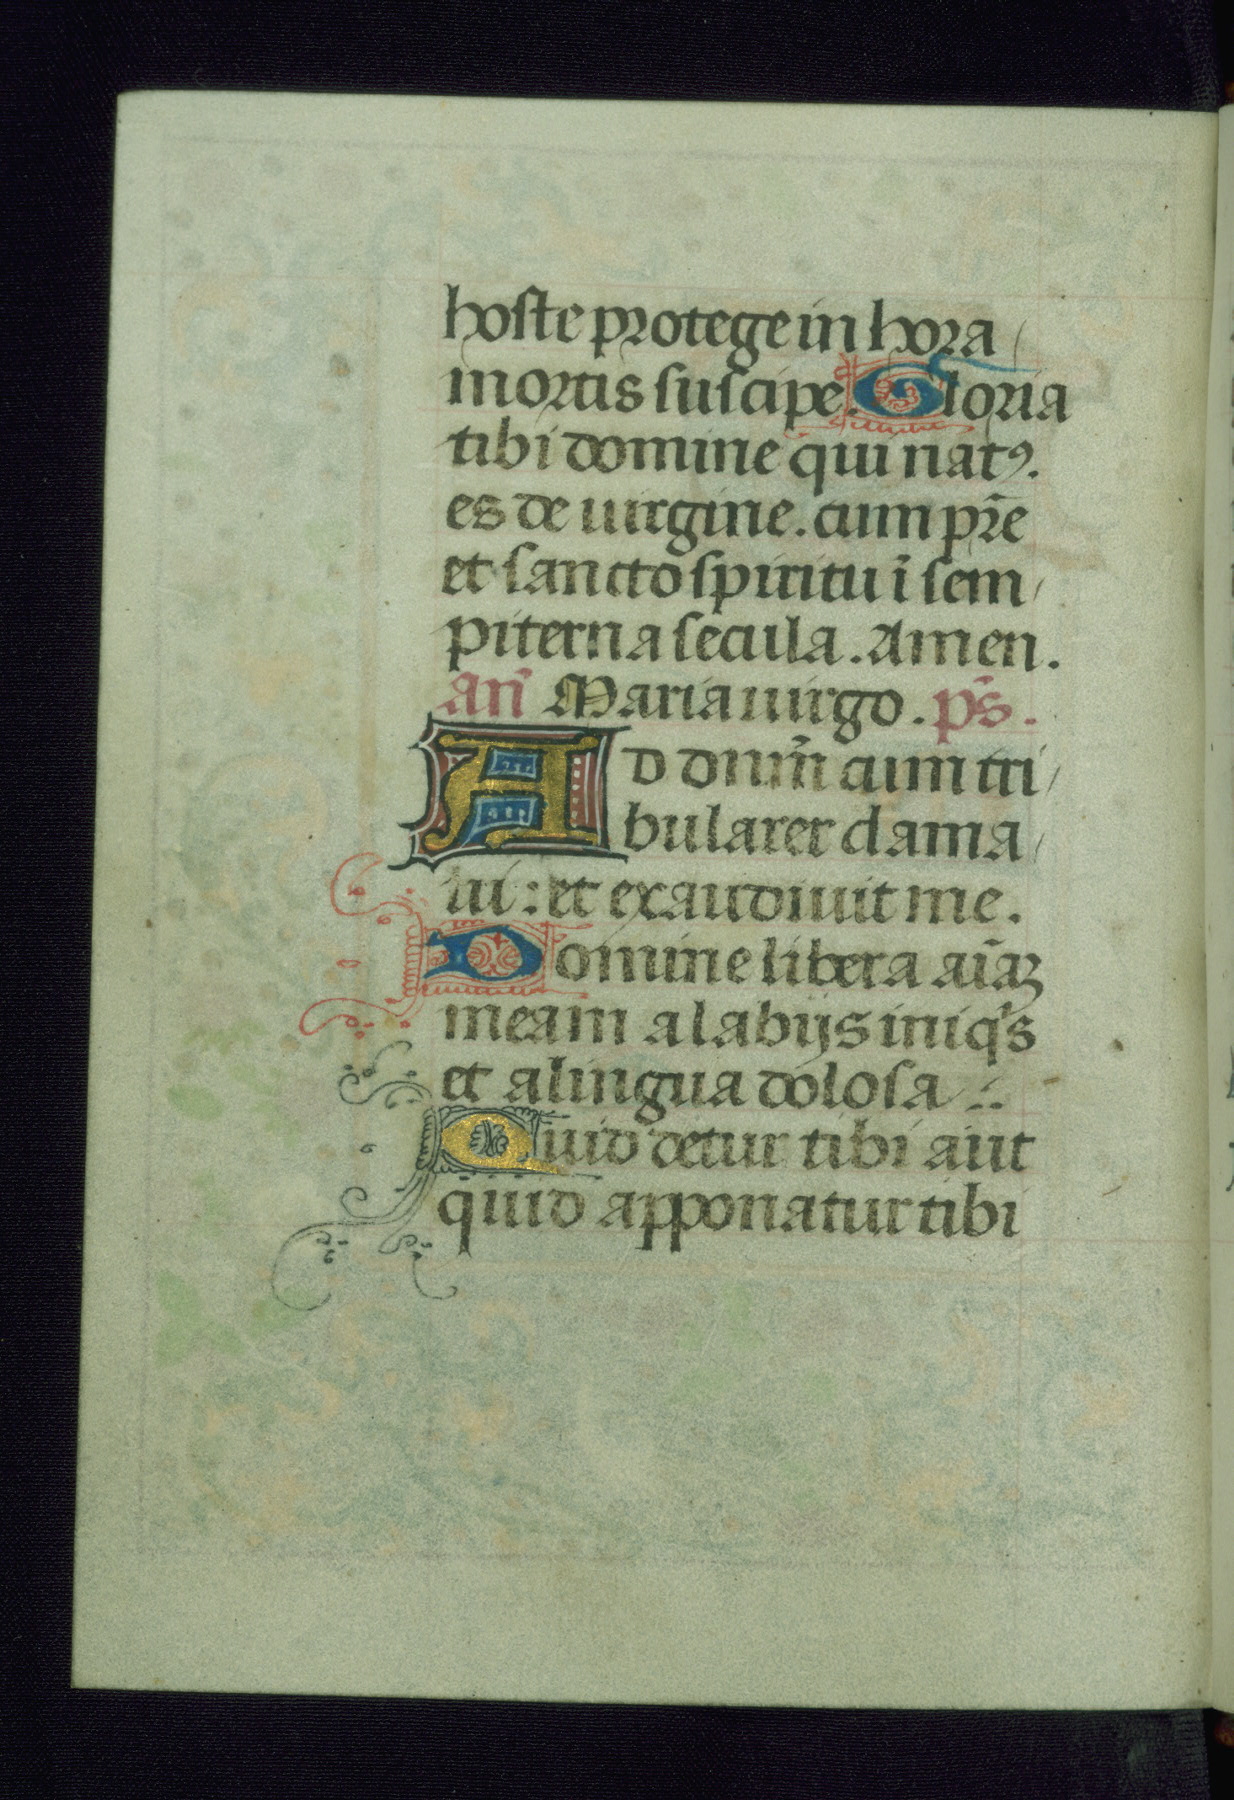 hoste protege in hora
mortis suscipe. Gloria
tibi domine qui natꝰ.
es de uirgine. cum pr̄e
et sancto spiritu ī sem
piterna secula. Amen.
an̄ Maria uirgo. ps̄.
AD dnm̄ cum tri
bularer clama
ui: et exaudiuit me.
Domine libera aīaꝫ
meam a labijs iniqͥs
et a lingua dolosa
Quid detur tibi aut
quid apponatur tibi